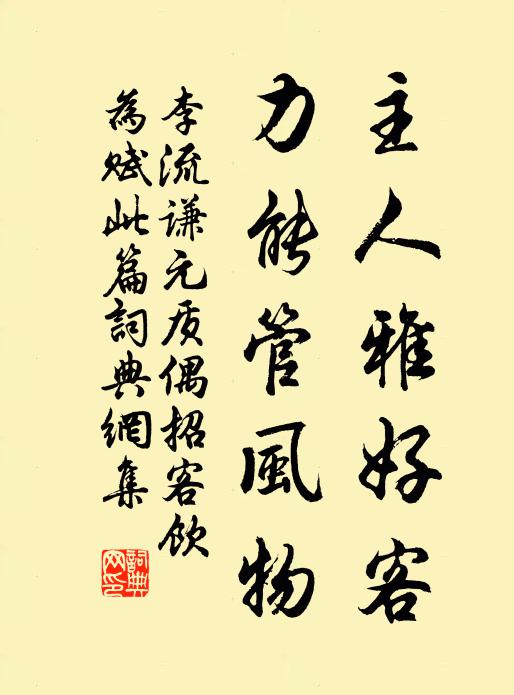 主人雅好客
力能管風物
李流谦元质偶招客飲
為赋此篇詞典網集
詞典
网印